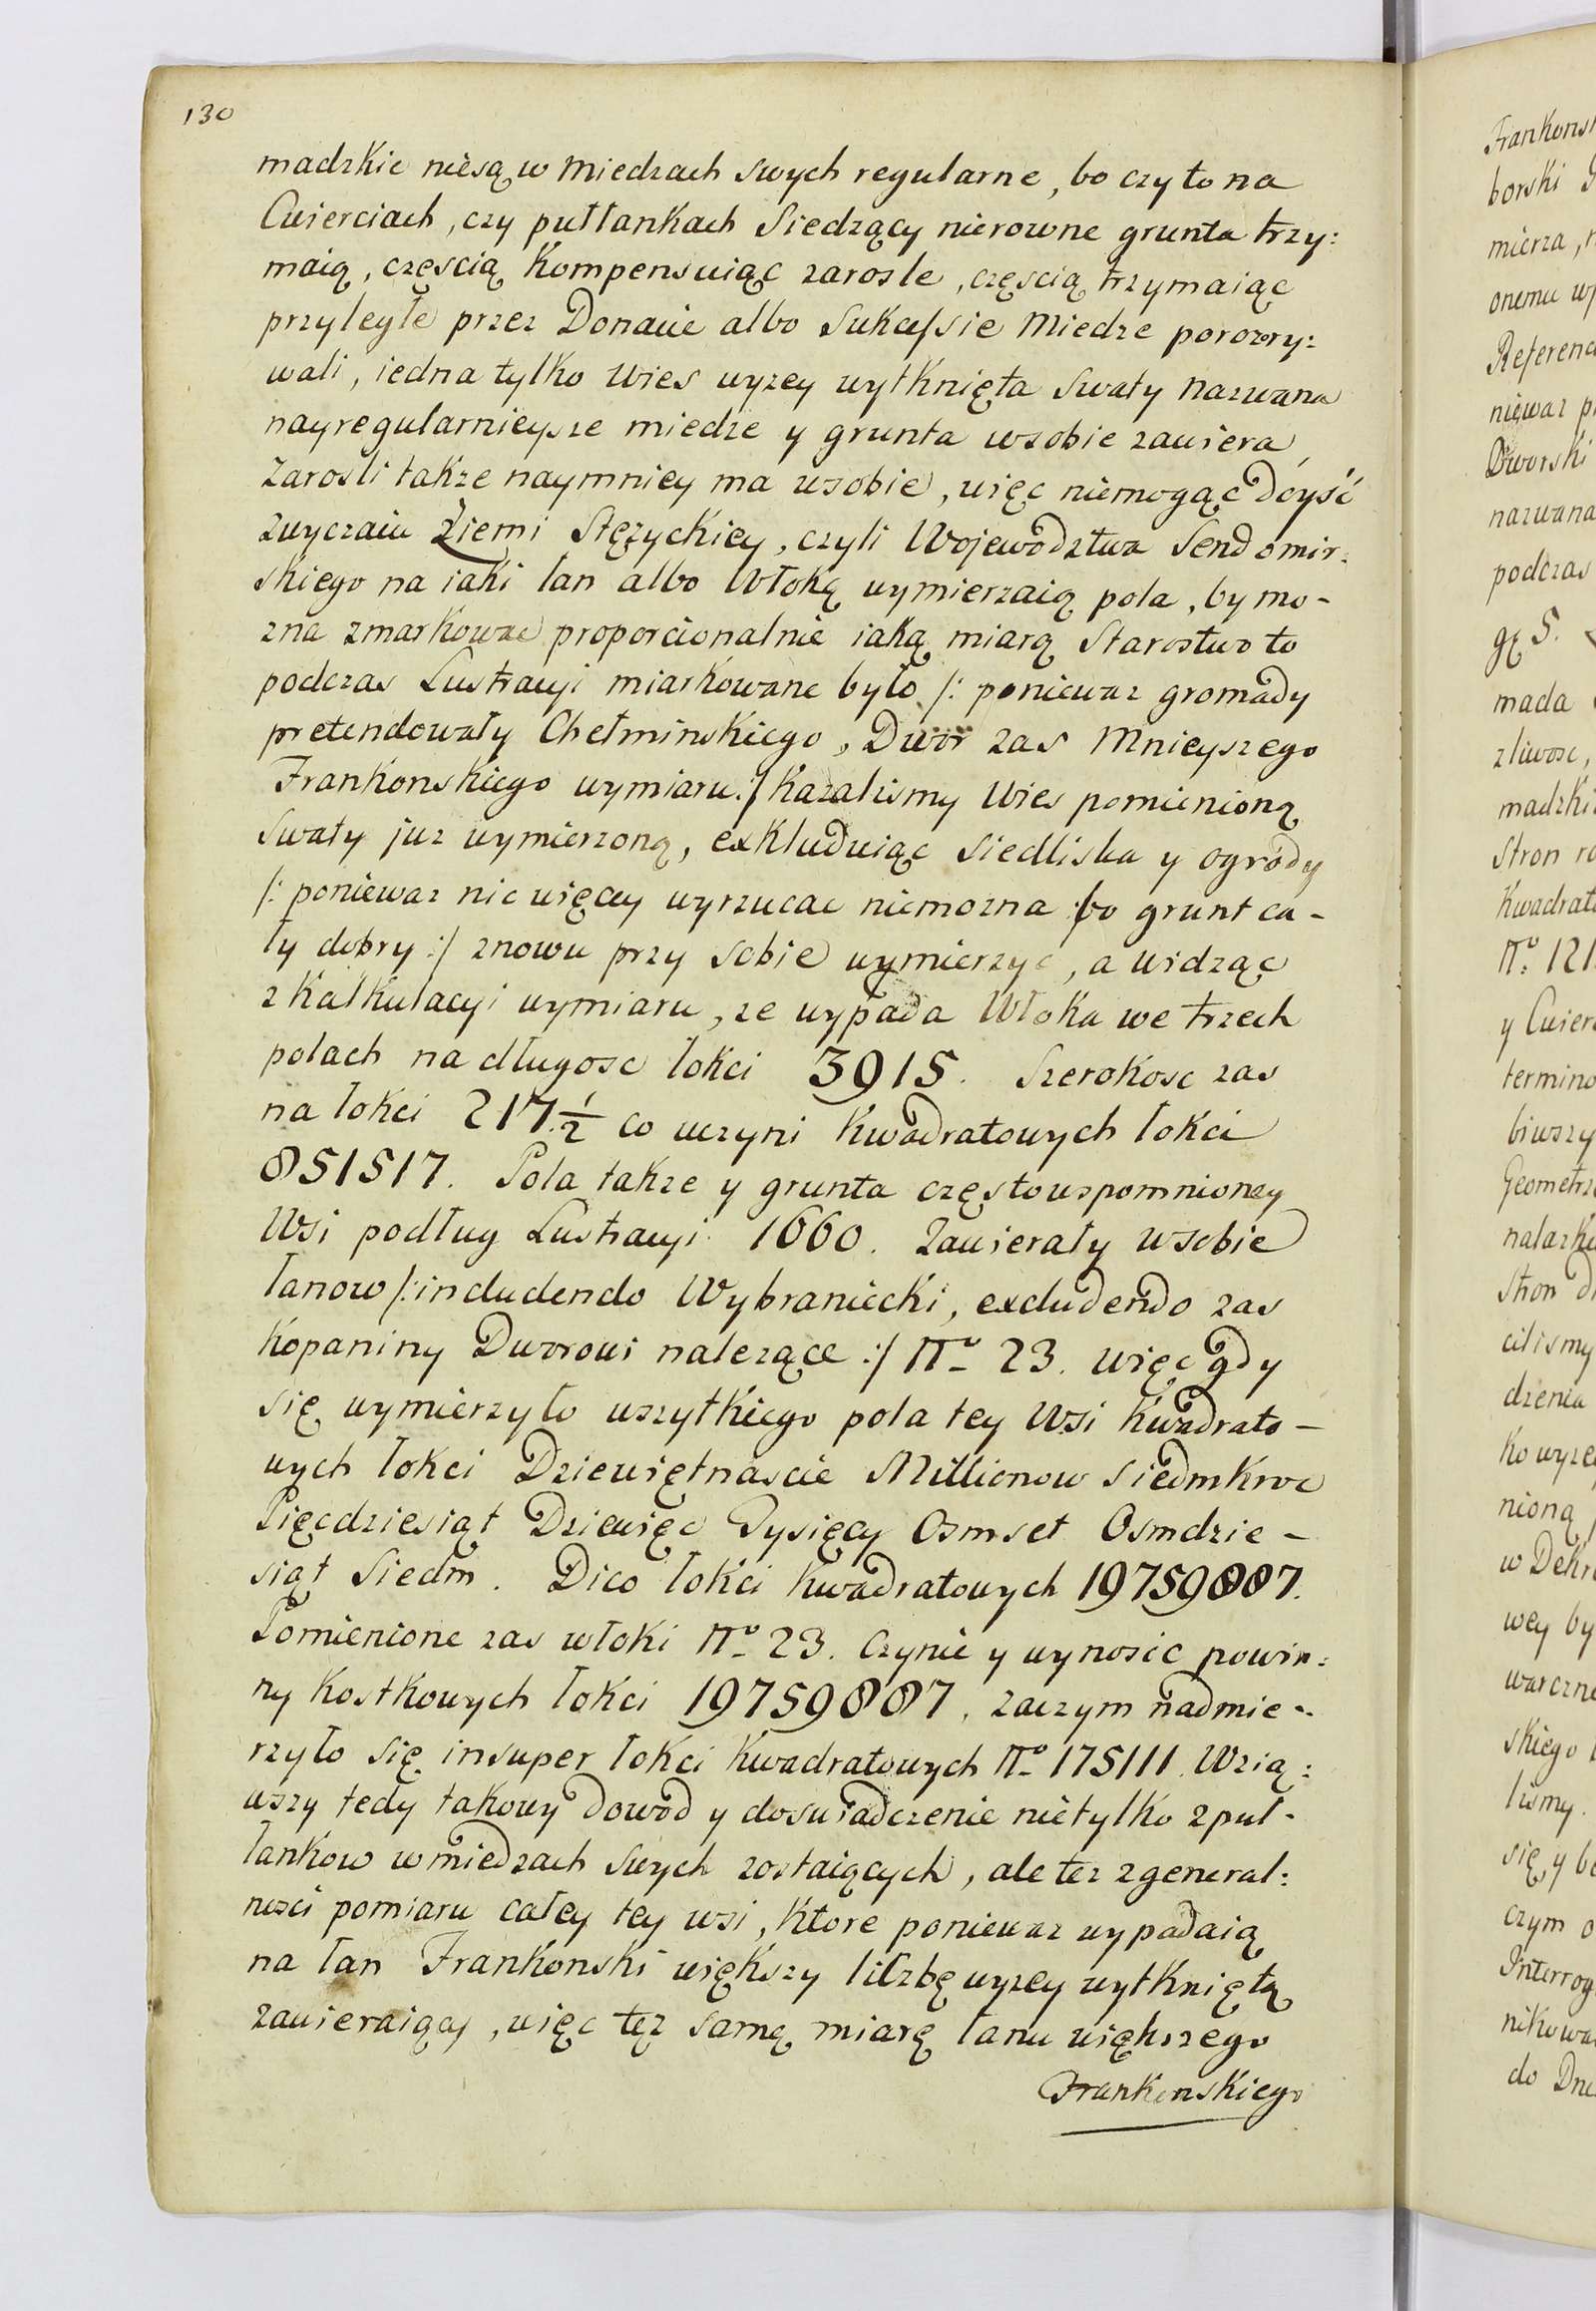 130
madzkie niesą w miedzach swych regularne, bo czyto na
Cwierciach, czy pułłankach Siedzący nierowne grunta trzy:
maią, częscią Kompensuiąc zarosle, częscią trzymaiąc
przyległe przez Donacie albo Sukcessie Miedze porozry:
wali, iedna tylko Wies wyzey wytknięta Swaty nazwana
nayregularnieysze miedze y grunta wsobie zawiera,
Zarosli takze naymniey ma wsobie, więc niemogąc doyść
zwyczaiu Ziemi Stężyckiey, czyli Wojewodztwa Sendomir:
skiego na iaki łan albo Włokę wymierzaią pola, by mo-
zna zmarkowac proporcionalnie iaką miarą Starostwo to
podczas Lustracyi miarkowane było /: poniewaz gromady
pretendowały Chełminskiego, Dwor zas Mnieyszego
Frankonskiego wymiaru :/ Kazalismy Wies pomienioną
Swaty juz wymierzoną, exkluduiąc Siedliska y ogrody
/: poniewaz nic więcey wyrzucac niemozna bo grunt ca-
ły dobry :/ znowu przy sobie wymierzyc, a widząc
z Kalkulacyi wymiaru, ze wypada Włoka we trzech
polach na długosc łokci 3915. Szerokosc zas
na łokci 217.½ co uczyni Kwadratowych łokci
851517. Pola takze y grunta częstowspomnioney
Wsi podług Lustracyi 1660. Zawierały wsobie
łanow /: includendo Wybraniecki, excludendo zas
Kopaniny Dworowi nalezące :/ No 23. więc gdy
się wymierzyło wszytkiego pola tey Wsi Kwadrato-
wych łokci Dziewiętnascie Millionow Siedmkroc
Pięcdziesiąt Dziewięc Tysięcy Osmset Osmdzie-
siąt Siedm. Dico łokci Kwadratowych 19759887.
Pomienione zas włoki No 23. Czynic y wynosic powin:
ny Kostkowych łokci 19759887, zaczym nadmie-
rzyło się insuper łokci Kwadratowych No 175111. Wzią:
wszy tedy takowy dowod y doswiadczenie nietylko zpuł-
łankow wmiedzach swych zostaiących, ale tez zgeneral:
nosci pomiaru całey tey wsi, Ktore poniewaz wypadaią
na łan Frankonski większy liczbę wyzey wytkniętą
zawieraiący, więc tęz samą miarę łanu większego
Frankonskiego